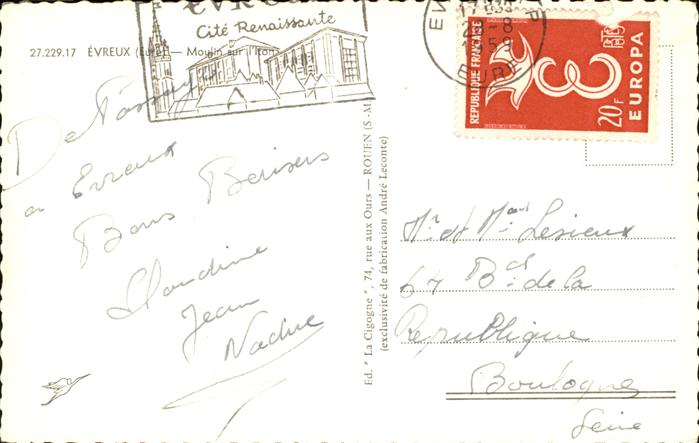 ÉVREUX
Cité Renaissante
27.229.17 ÉVREUX (Eure) — Moulin sur l'Iton
De Passage
a Evreux
Bons Baisers
Claudine
Jean
Ed. "La Cigogne", 74, rue aux Ours — ROUEN (S.-M.
(exclusivité de fabrication André Leconte)
EV
EURE
REPUBLIQUE FRANÇAISE
20F EUROPA
Mr et Mme Lesieux
67 Bd de la
Republique
Boulogne
Seine